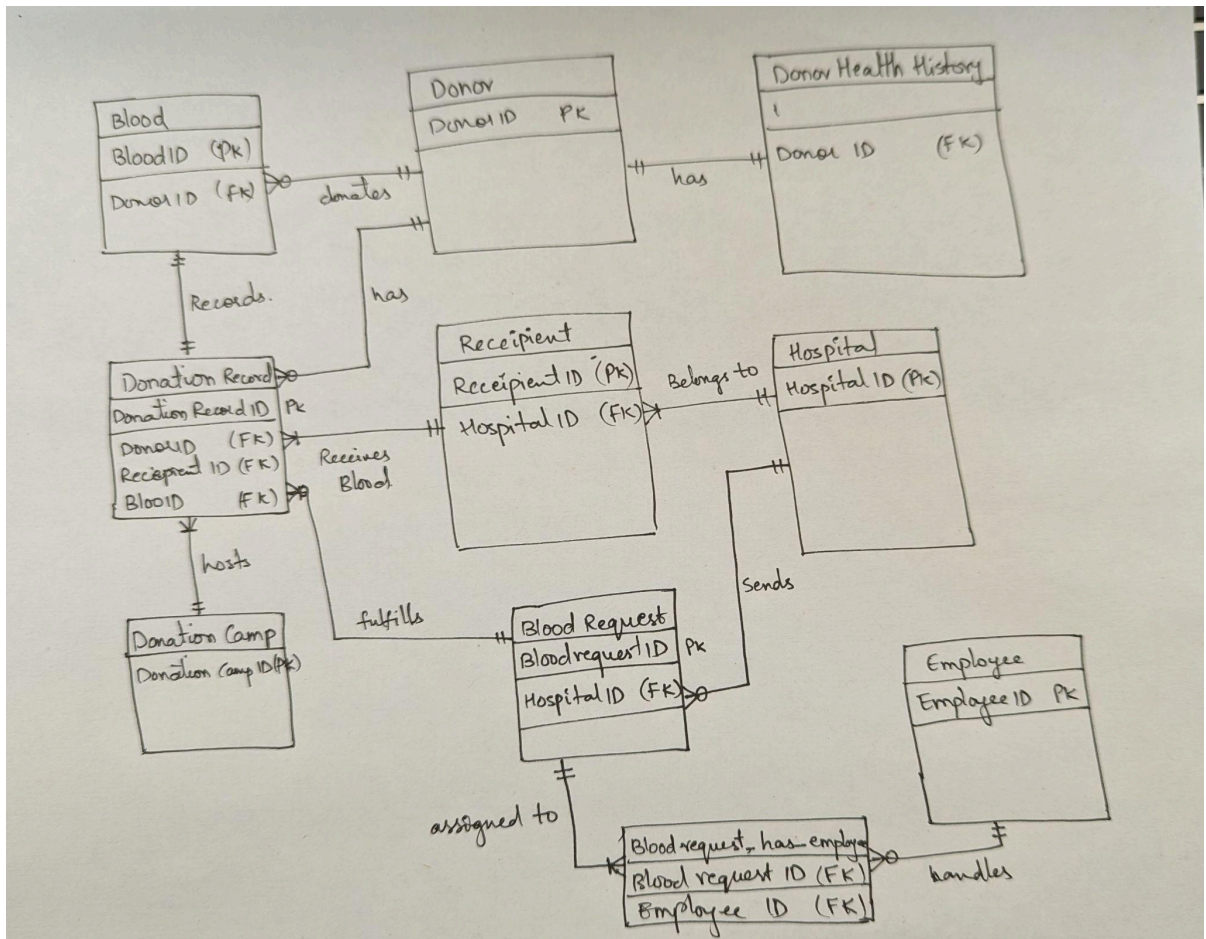 Blood
BloodID (PK)
DonorID (FK)
donates
Donor
DonorID PK
has
Donor Health History
Donor ID (FK)
Records.
has
Donation Record
Donation Record ID PK
DonorID (FK)
Reciepient ID (FK)
BlooID (FK)
Receives
Blood
Receipient
Receipient ID (PK)
Hospital ID (FK)
Belongs to
Hospital
Hospital ID (PK)
Sends
hosts
Donation Camp
Donation Camp ID (PK)
fulfills
Blood Request
Bloodrequest ID PK
Hospital ID (FK)
assigned to
Blood request_has_employe
Blood request ID (FK)
Employee ID (FK)
handles
Employee
Employee ID PK